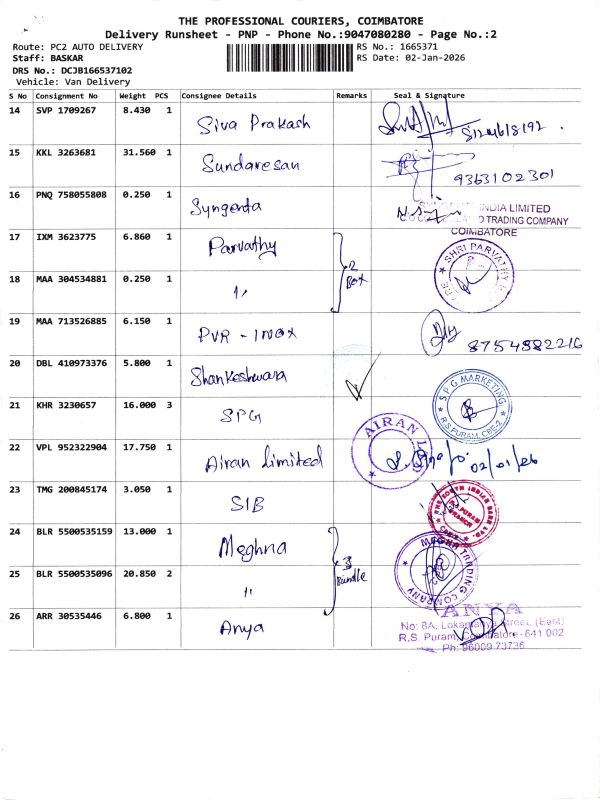 THE PROFESSIONAL COURIERS, COIMBATORE
Delivery Runsheet - PNP - Phone No.:9047080280 - Page No.:2
Route: PC2 AUTO DELIVERY
RS No.: 1665371
Staff: BASKAR
RS Date: 02-Jan-2026
DRS No.: DCJB166537102
Vehicle: Van Delivery
S No Consignment No Weight PCS Consignee Details Remarks Seal & Signature
14 SVP 1709267 8.430 1 Siva Prakash
15 KKL 3263681 31.560 1 Sundaresan 9363102301
16 PNQ 758055808 0.250 1 Syngenta
INDIA LIMITED
TRADING COMPANY
COIMBATORE
17 IXM 3623775 6.860 1 Parvathy 2 Box
SHRI PARVATHY
18 MAA 304534881 0.250 1 "
19 MAA 713526885 6.150 1 PVR - INOX 8754882216
20 DBL 410973376 5.800 1 Shankeshwara
21 KHR 3230657 16.000 3 SPG
SPG MARKETING
R.S.PURAM, CBE-2
22 VPL 952322904 17.750 1 Airan Limited 02/01/26
AIRAN
23 TMG 200845174 3.050 1 SIB
THE SOUTH INDIAN BANK LTD.
R.S. PURAM
BRANCH
24 BLR 5500535159 13.000 1 Meghna 3 Bundle
TRADING COMPANY
25 BLR 5500535096 20.850 2 "
26 ARR 30535446 6.800 1 Anya
ANYA
No: 8A, Lokamanya Street, (East)
R.S. Puram, Coimbatore - 641 002
Ph: 96009 73736